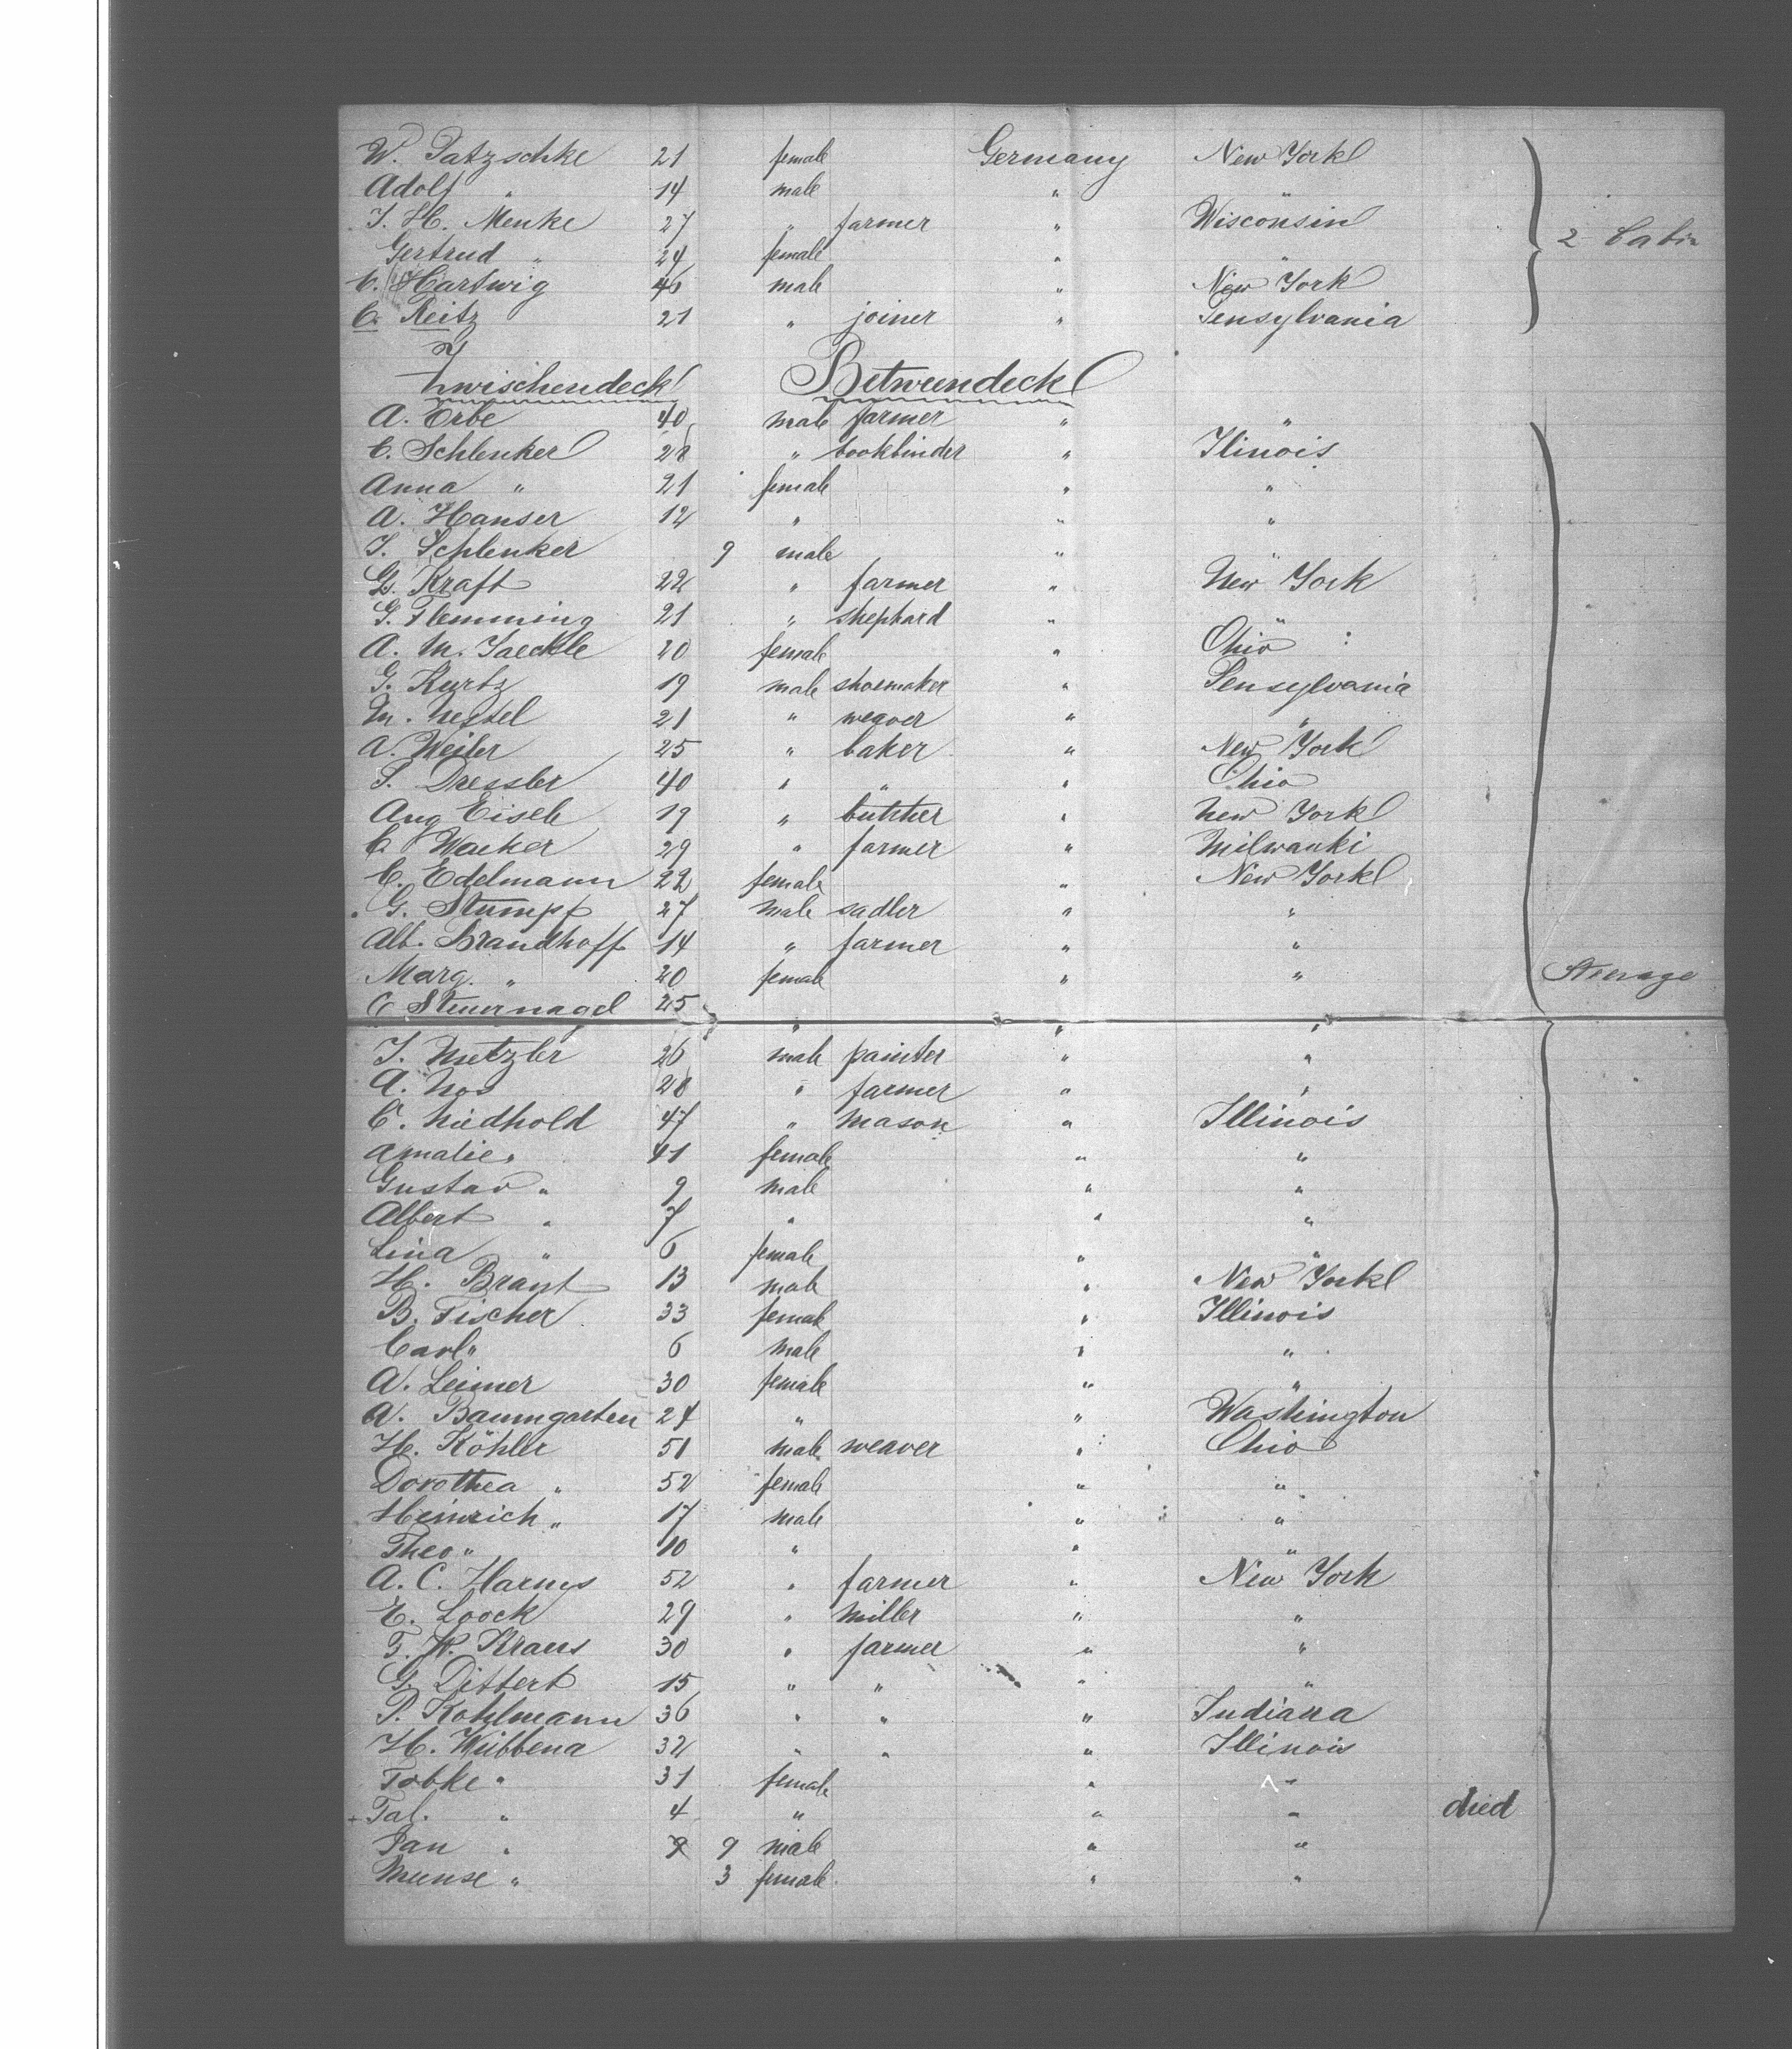 W. Patzschke 21 female Germany New York
Adolf " 14 male " "
J. H. Menke 27 " farmer " Wisconsin
Gertrud " 24 female " "
C. Hartwig 46 male " New York
C. Reitz 21 " joiner " Pensylvania
Zwischendeck Betweendeck
A. Erbe 40 male farmer " "
C. Schlenker 28 " bookbinder " Ilinois
Anna " 21 female " "
A. Hanser 12 " " "
J. Schlenker 9 male " "
G. Kraft 22 " farmer " New York
G. Flemming 21 " shephard " "
A. M. Jaeckle 20 female " Ohio
G. Kurtz 19 male shoemaker " Pensylvania
M. Nestel 21 " weaver " "
A. Weiler 25 " baker " New York
S. Dressler 40 " " " Ohio
Aug Eisele 19 " butcher " New York
C. Wacker 29 " farmer " Milwauki
C. Edelmann 22 female " New York
G. Stumpf 27 male sadler " "
Alb. Brandhoff 14 " farmer " "
Marg. " 20 female " "
C Steuernagel 25 " " "
J. Metzler 26 male painter " "
A. Nos 28 " farmer " "
C. Niedhold 47 " mason " Illinois
Amalie " 41 female " "
Gustav " 9 male " "
Albert " 7 " " "
Lina " 6 female " "
H. Brant 13 male " New York
B. Fischer 33 female " Illinois
Carl " 6 male " "
A. Leimer 30 female " "
A. Baumgarten 24 " " Washington
H. Köhler 51 male weaver " Ohio
Dorothea " 52 female " "
Heinrich " 17 male " "
Theo " 10 " " "
A. C. Harms 52 " farmer " New York
E. Loock 29 " miller " "
F. W. Kraus 30 " farmer " "
G. Dittert 15 " " " "
P. Kohlmann 36 " " " Indiana
H. Wübbena 32 " " " Illinois
Tobke " 31 female " "
+ Tal. " 4 " " " died
Jan " 9 male " "
Meense " 3 female " "
2 Cabin
Steerage